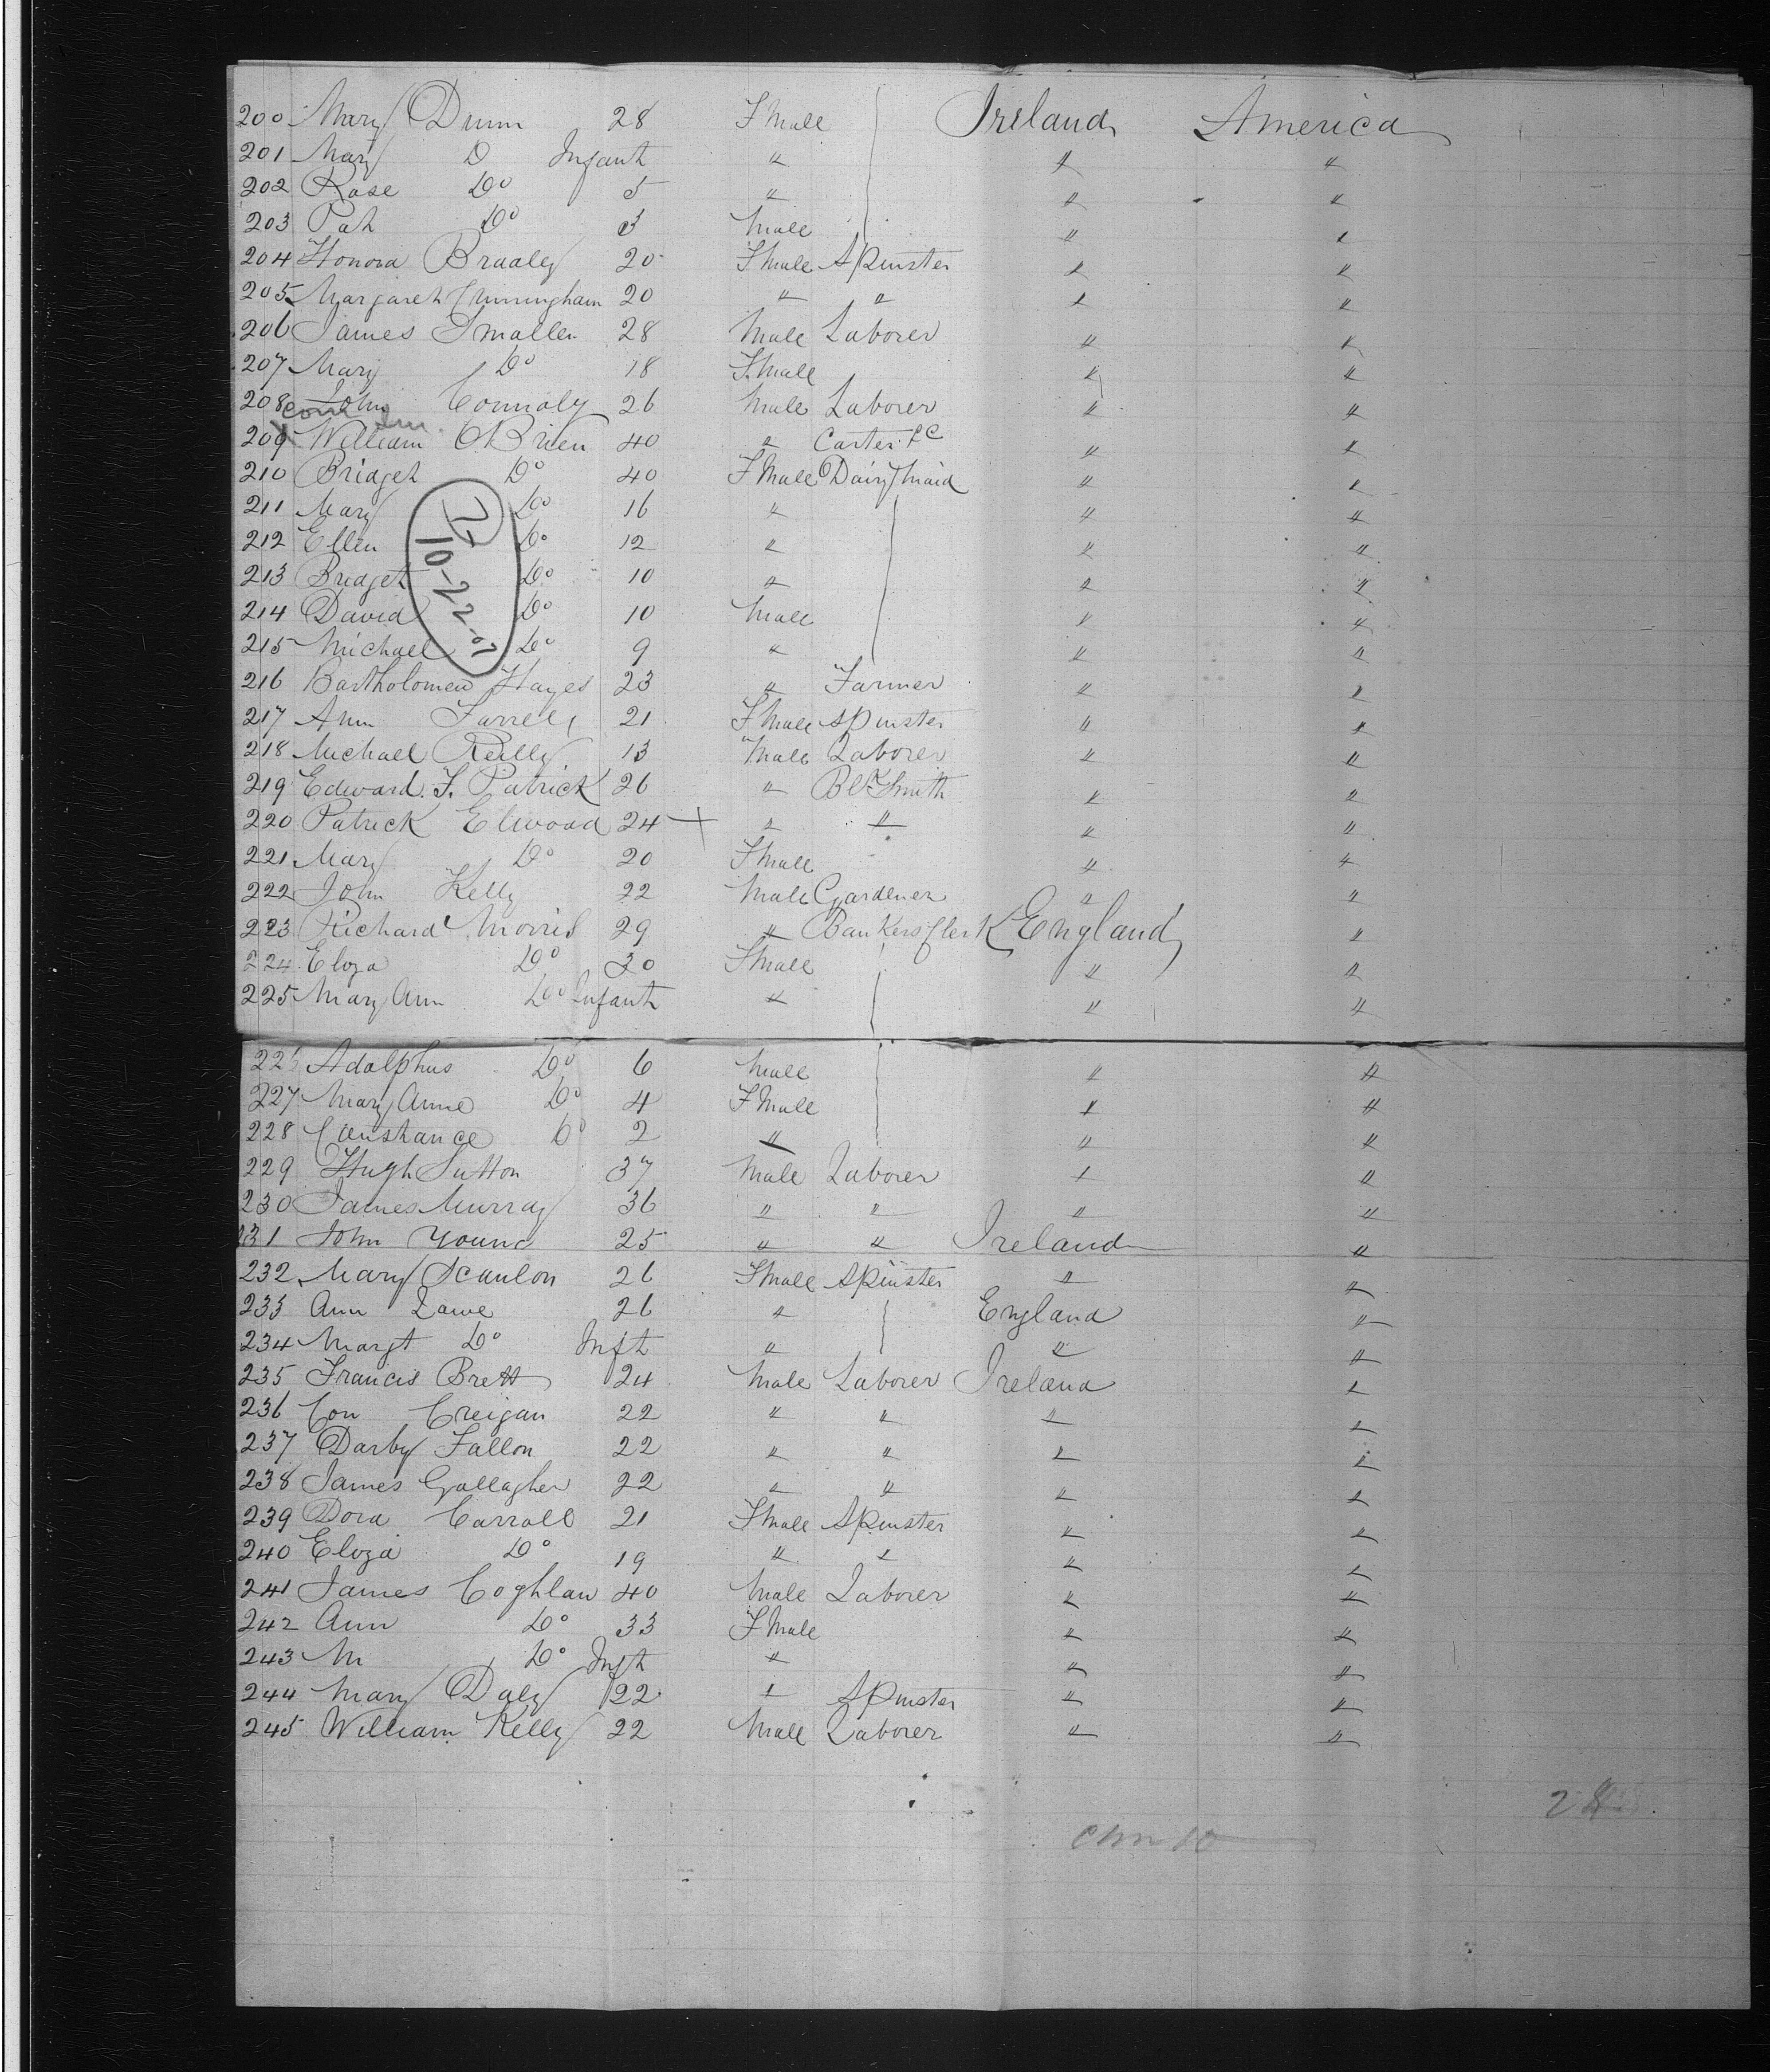 200 Mary Dunn 28 F Male Ireland America
201 Mary D Infant " " "
202 Rose Do 5 " " "
203 Pat Do 3 Male " "
204 Honora Braaly 20 F Male Spinster " "
205 Margaret Cunningham 20 " " " "
206 James Smallen 28 Male Laborer " "
207 Mary Do 18 F. Male " "
208 John Connoly 26 Male Laborer " "
209 William OBrien 40 " Carter &C " "
210 Bridget Do 40 F Male Dairy Maid " "
211 Mary Do 16 " " "
212 Ellen Do 12 " " "
213 Bridget Do 10 " " "
214 David Do 10 Male " "
215 Michael Do 9 " " "
10-22-07
216 Bartholomew Hayes 23 " Farmer " "
217 Ann Farrell 21 F Male Spinster " "
218 Michael Reilly 13 Male Laborer " "
219 Edward. F. Patrick 26 " Blk Smith " "
220 Patrick Elwood 24 + " " " "
221 Mary Do 20 F Male " "
222 John Kelly 22 Male Gardener " "
223 Richard Morris 29 " Bankers Clerk England "
224 Eliza Do 30 F Male " "
225 Mary Ann Do Infant " " "
226 Adolphus Do 6 Male " "
227 Mary Anne Do 4 F Male " "
228 Constance Do 2 " " "
229 Hugh Sutton 37 Male Laborer " "
230 James Murray 36 " " " "
231 John Young 25 " " Ireland "
232 Mary Scanlon 26 F Male Spinster " "
233 Ann Lawe 26 " England "
234 Margt Do Inft " " "
235 Francis Brett 24 Male Laborer Ireland "
236 Con Creigan 22 " " " "
237 Darby Fallon 22 " " " "
238 James Gallagher 22 " " " "
239 Dora Carroll 21 F Male Spinster " "
240 Eliza Do 19 " " " "
241 James Coghlan 40 Male Laborer " "
242 Ann Do 33 F Male " "
243 M Do Inft " " "
244 Mary Daly 22 " Spinster " "
245 William Kelly 22 Male Laborer " "